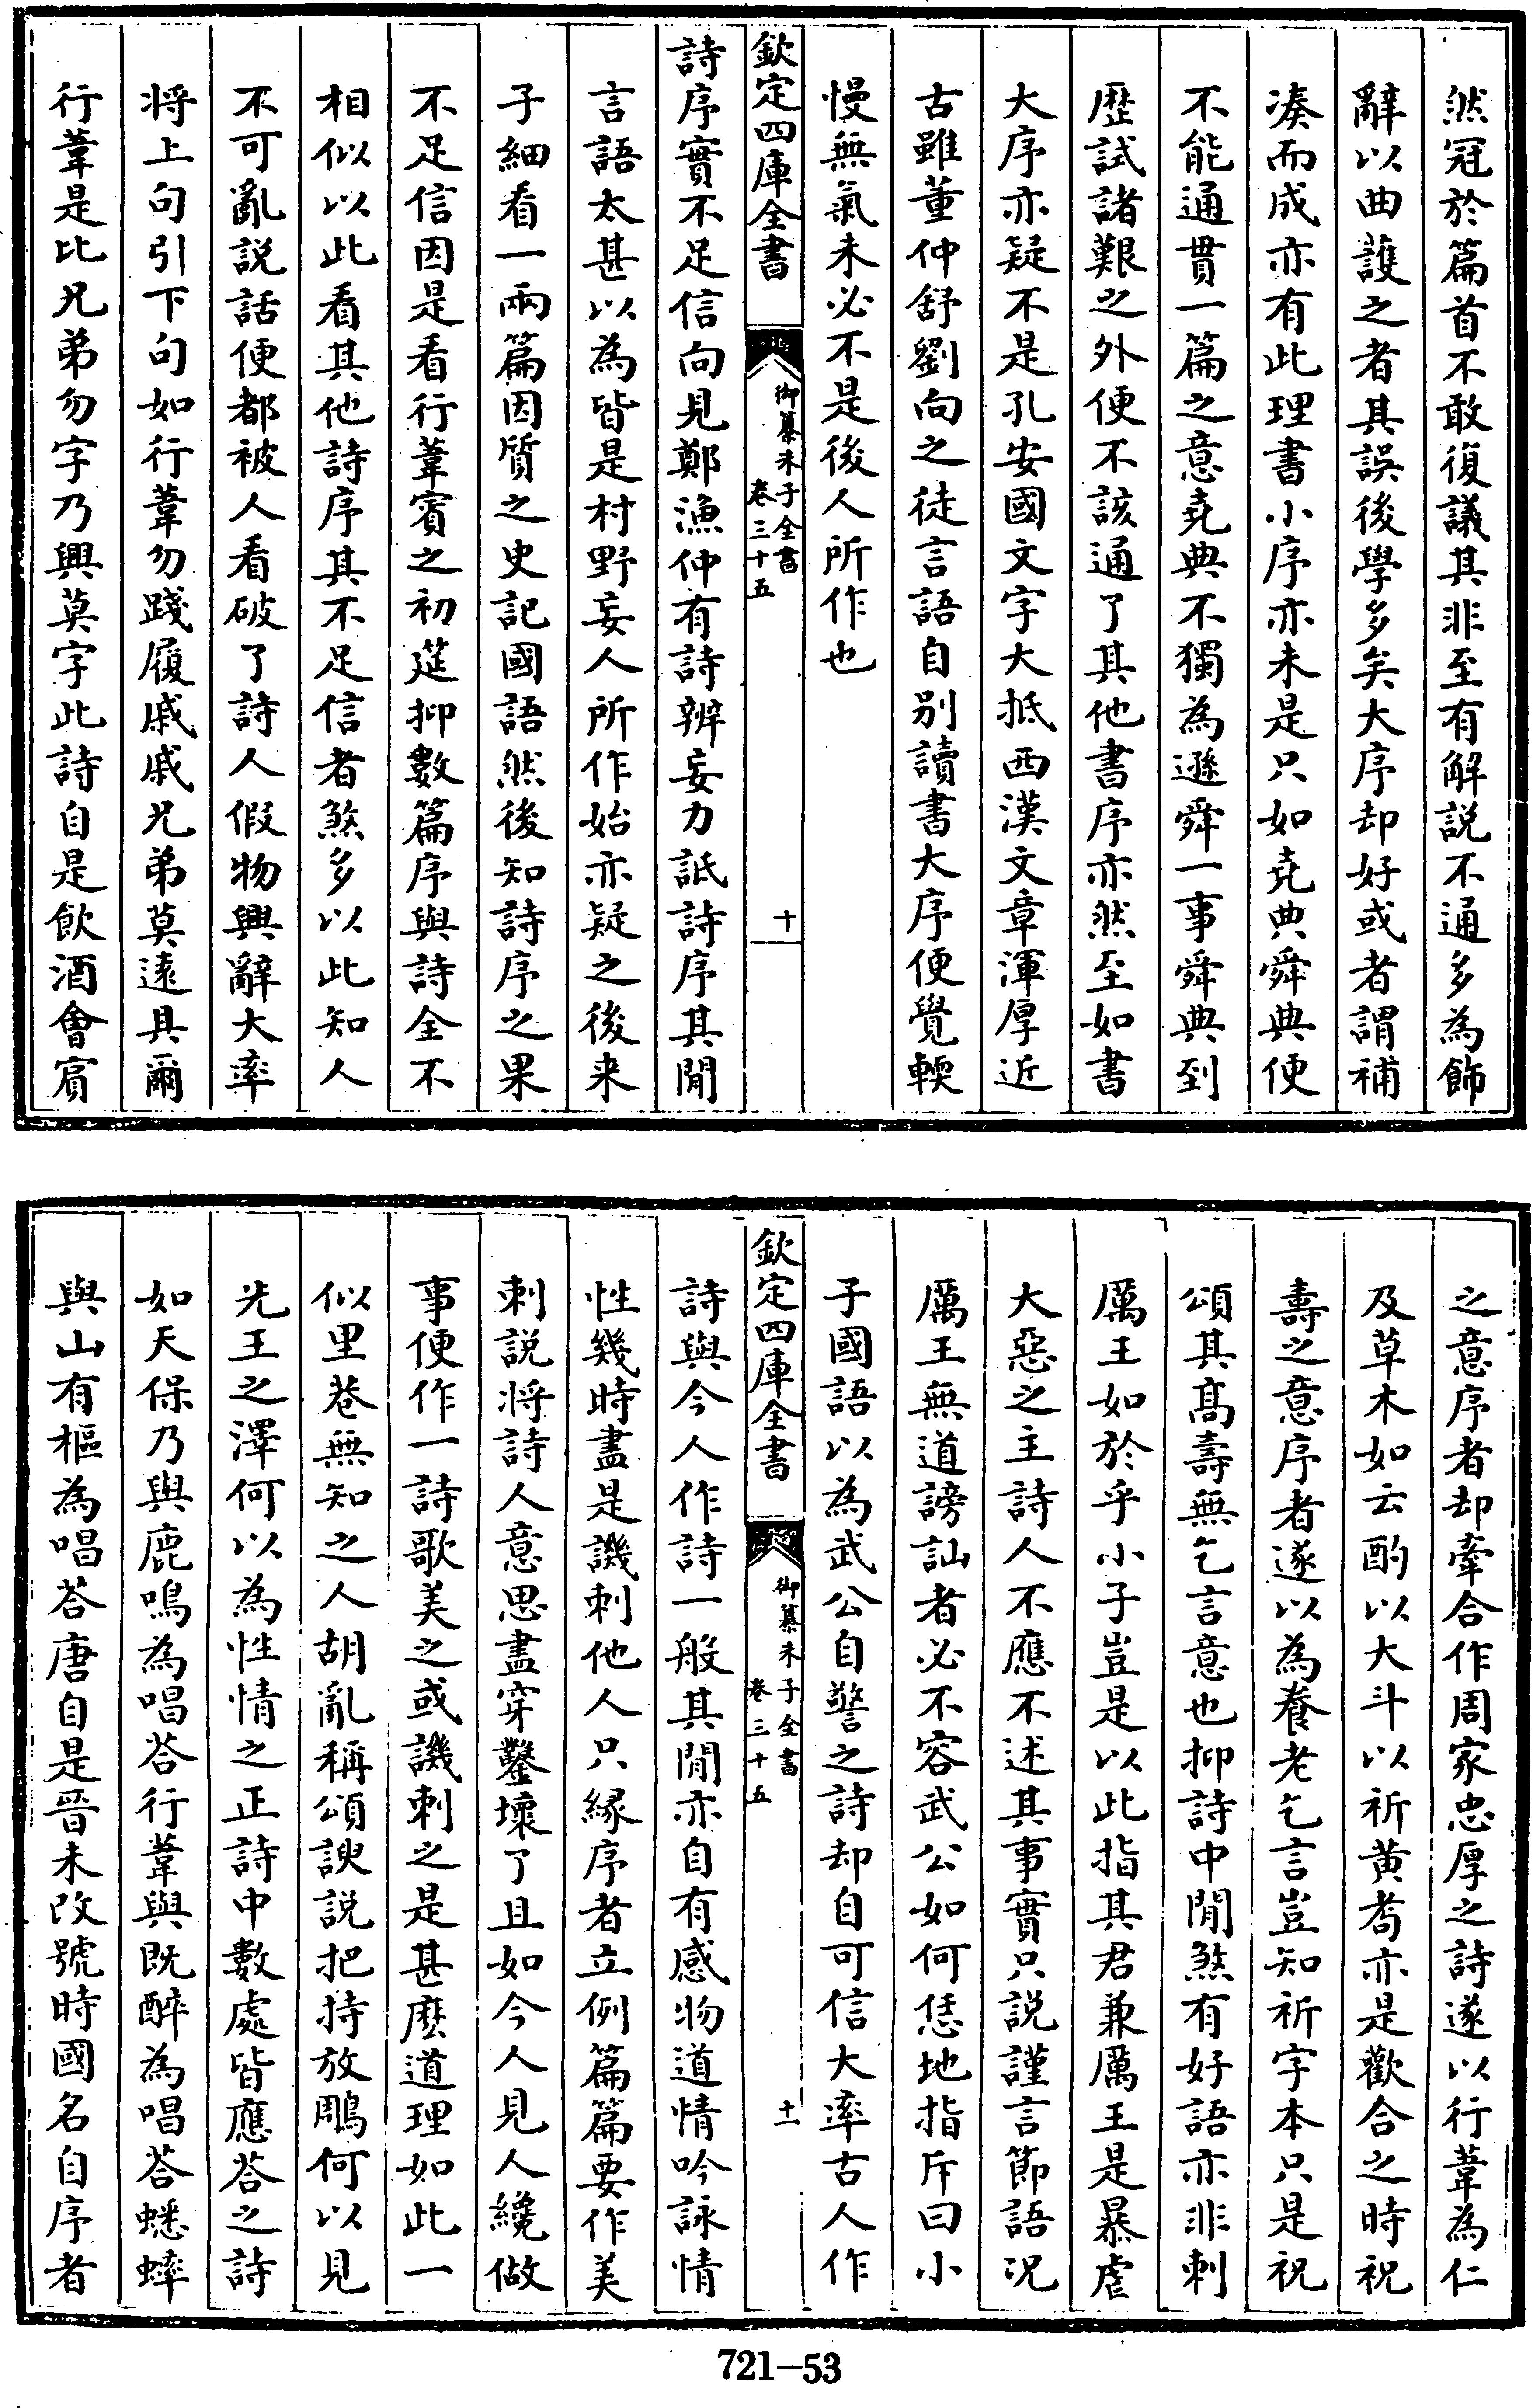 然冠於篇首不敢復議其非至有解說不通多為飾
辭以曲護之者其誤後學多矣大序却好或者謂補
湊而成亦有此理書小序亦未是只如堯典舜典便
不能通貫一篇之意堯典不獨為遜舜一事舜典到
歴試諸艱之外便不該通了其他書序亦然至如書
大序亦疑不是孔安國文字大抵西漢文章渾厚近
古雖董仲舒劉向之徒言語自别讀書大序便覺輭
慢無氣未必不是後人所作也
欽定四庫全書
御纂朱子全書
卷三十五
十
詩序實不足信向見鄭漁仲有詩辨妄力詆詩序其閒
言語太甚以為皆是村野妄人所作始亦疑之後来
子細看一兩篇因質之史記國語然後知詩序之果
不足信因是看行葦賓之初筵抑數篇序與詩全不
相似以此看其他詩序其不足信者煞多以此知人
不可亂說話便都被人看破了詩人假物興辭大率
將上句引下句如行葦勿踐履戚戚兄弟莫逺具爾
行葦是比兄弟勿字乃興莫字此詩自是飲酒會賓
之意序者却牽合作周家忠厚之詩遂以行葦為仁
及草木如云酌以大斗以祈黄耉亦是歡合之時祝
壽之意序者遂以為養老乞言豈知祈字本只是祝
頌其髙壽無乞言意也抑詩中閒煞有好語亦非刺
厲王如於乎小子豈是以此指其君兼厲王是暴虐
大惡之主詩人不應不述其事實只說謹言節語况
厲王無道謗訕者必不容武公如何恁地指斥曰小
子國語以為武公自警之詩却自可信大率古人作
欽定四庫全書
御纂朱子全書
卷三十五
十一
詩與今人作詩一般其閒亦自有感物道情吟詠情
性幾時盡是譏刺他人只緣序者立例篇篇要作美
刺說將詩人意思盡穿鑿壞了且如今人見人纔做
事便作一詩歌美之或譏刺之是甚麽道理如此一
似里巷無知之人胡亂稱頌諛說把持放鵰何以見
先王之澤何以為性情之正詩中數處皆應荅之詩
如天保乃與鹿鳴為唱荅行葦與既醉為唱荅蟋蟀
與山有樞為唱荅唐自是晉未改號時國名自序者
721-53